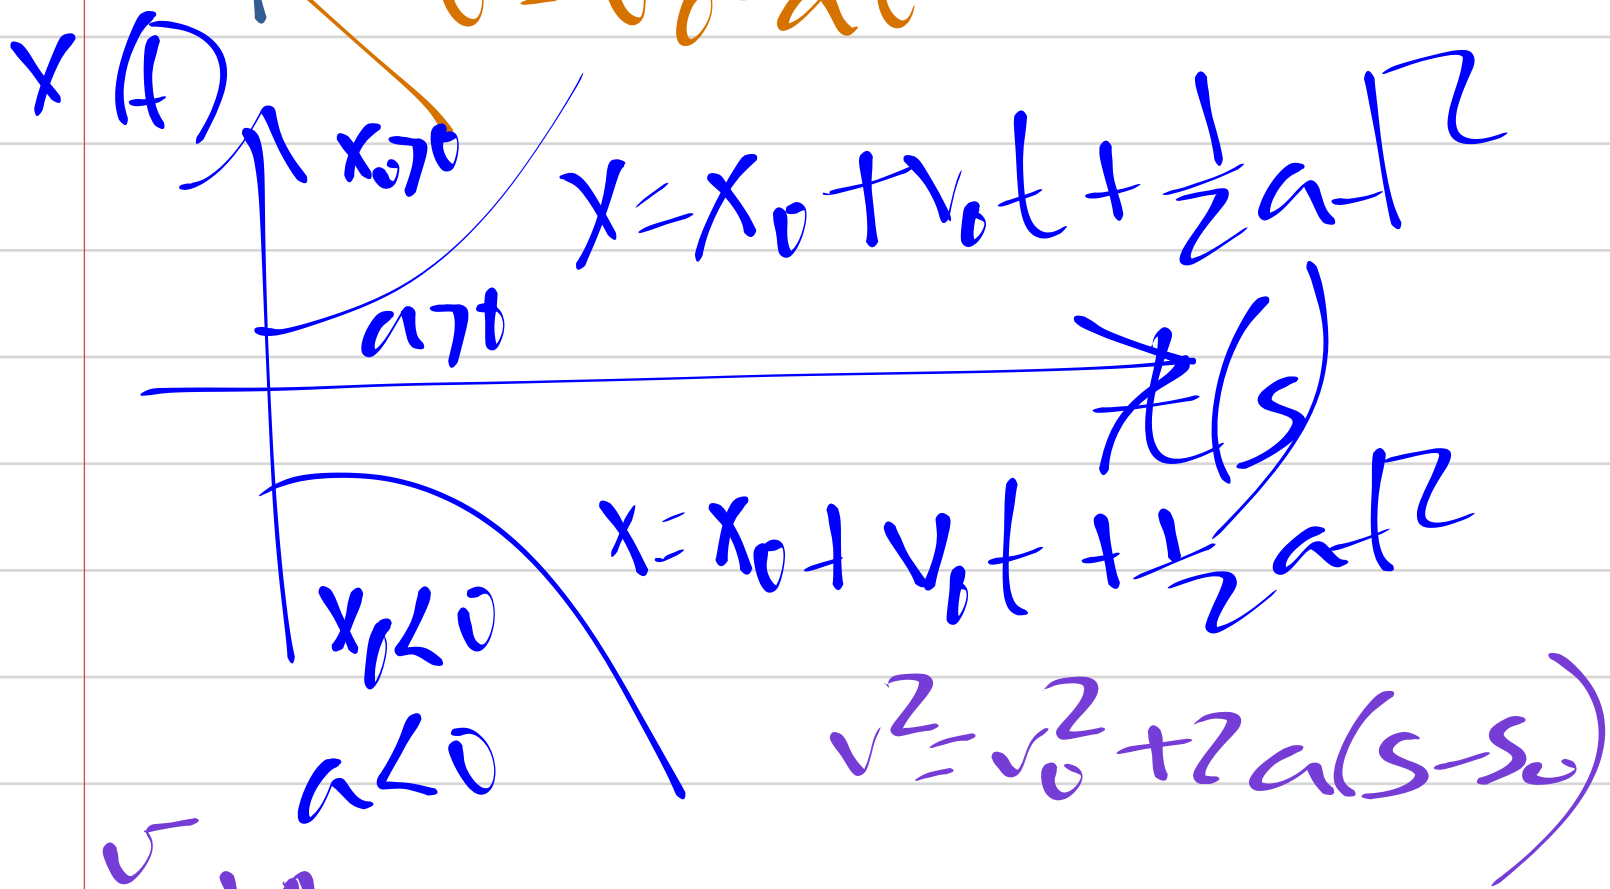 x (t)
x₀>0
x=x₀+v₀t+½at²
a>0
t(s)
x=x₀+v₀t+½at²
x₀<0
v²=v₀²+2a(s-s₀)
a<0
v